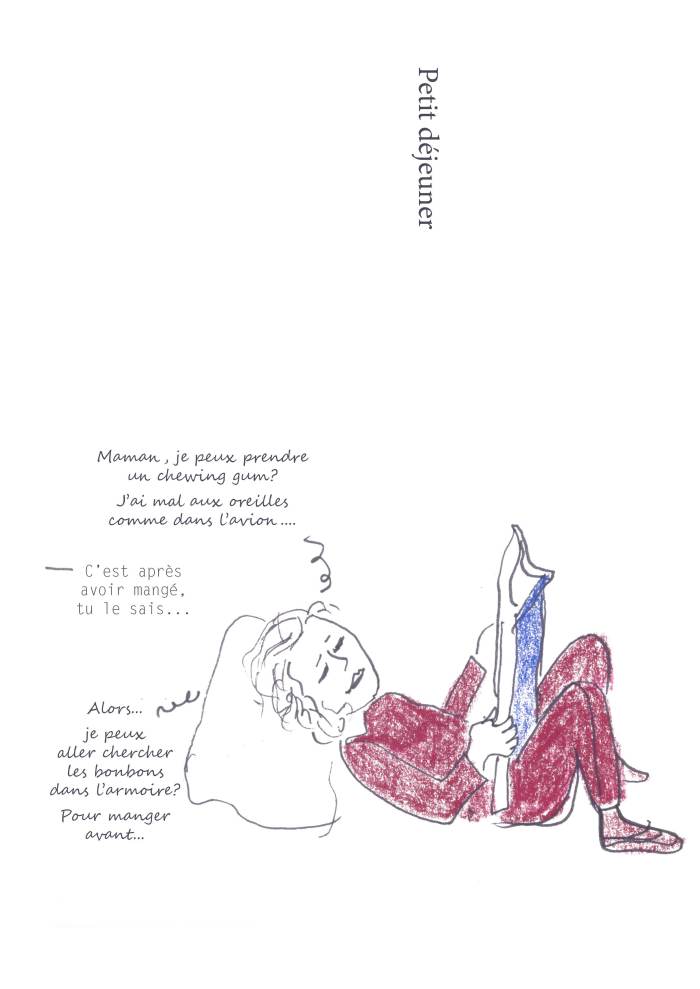 Petit déjeuner
Maman, je peux prendre
un chewing gum?
J'ai mal aux oreilles
comme dans l'avion....
— C'est après
avoir mangé,
tu le sais...
Alors...
je peux
aller chercher
les bonbons
dans l'armoire?
Pour manger
avant...